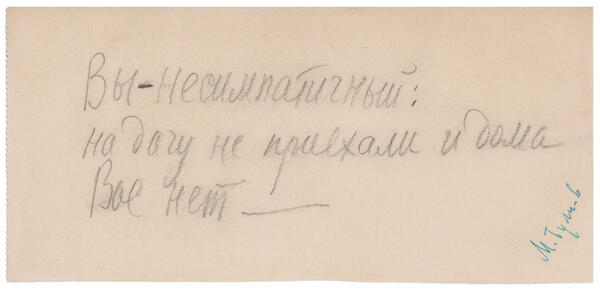 Вы - несимпатичный:
на дачу не приехали и дома
Вас нет —